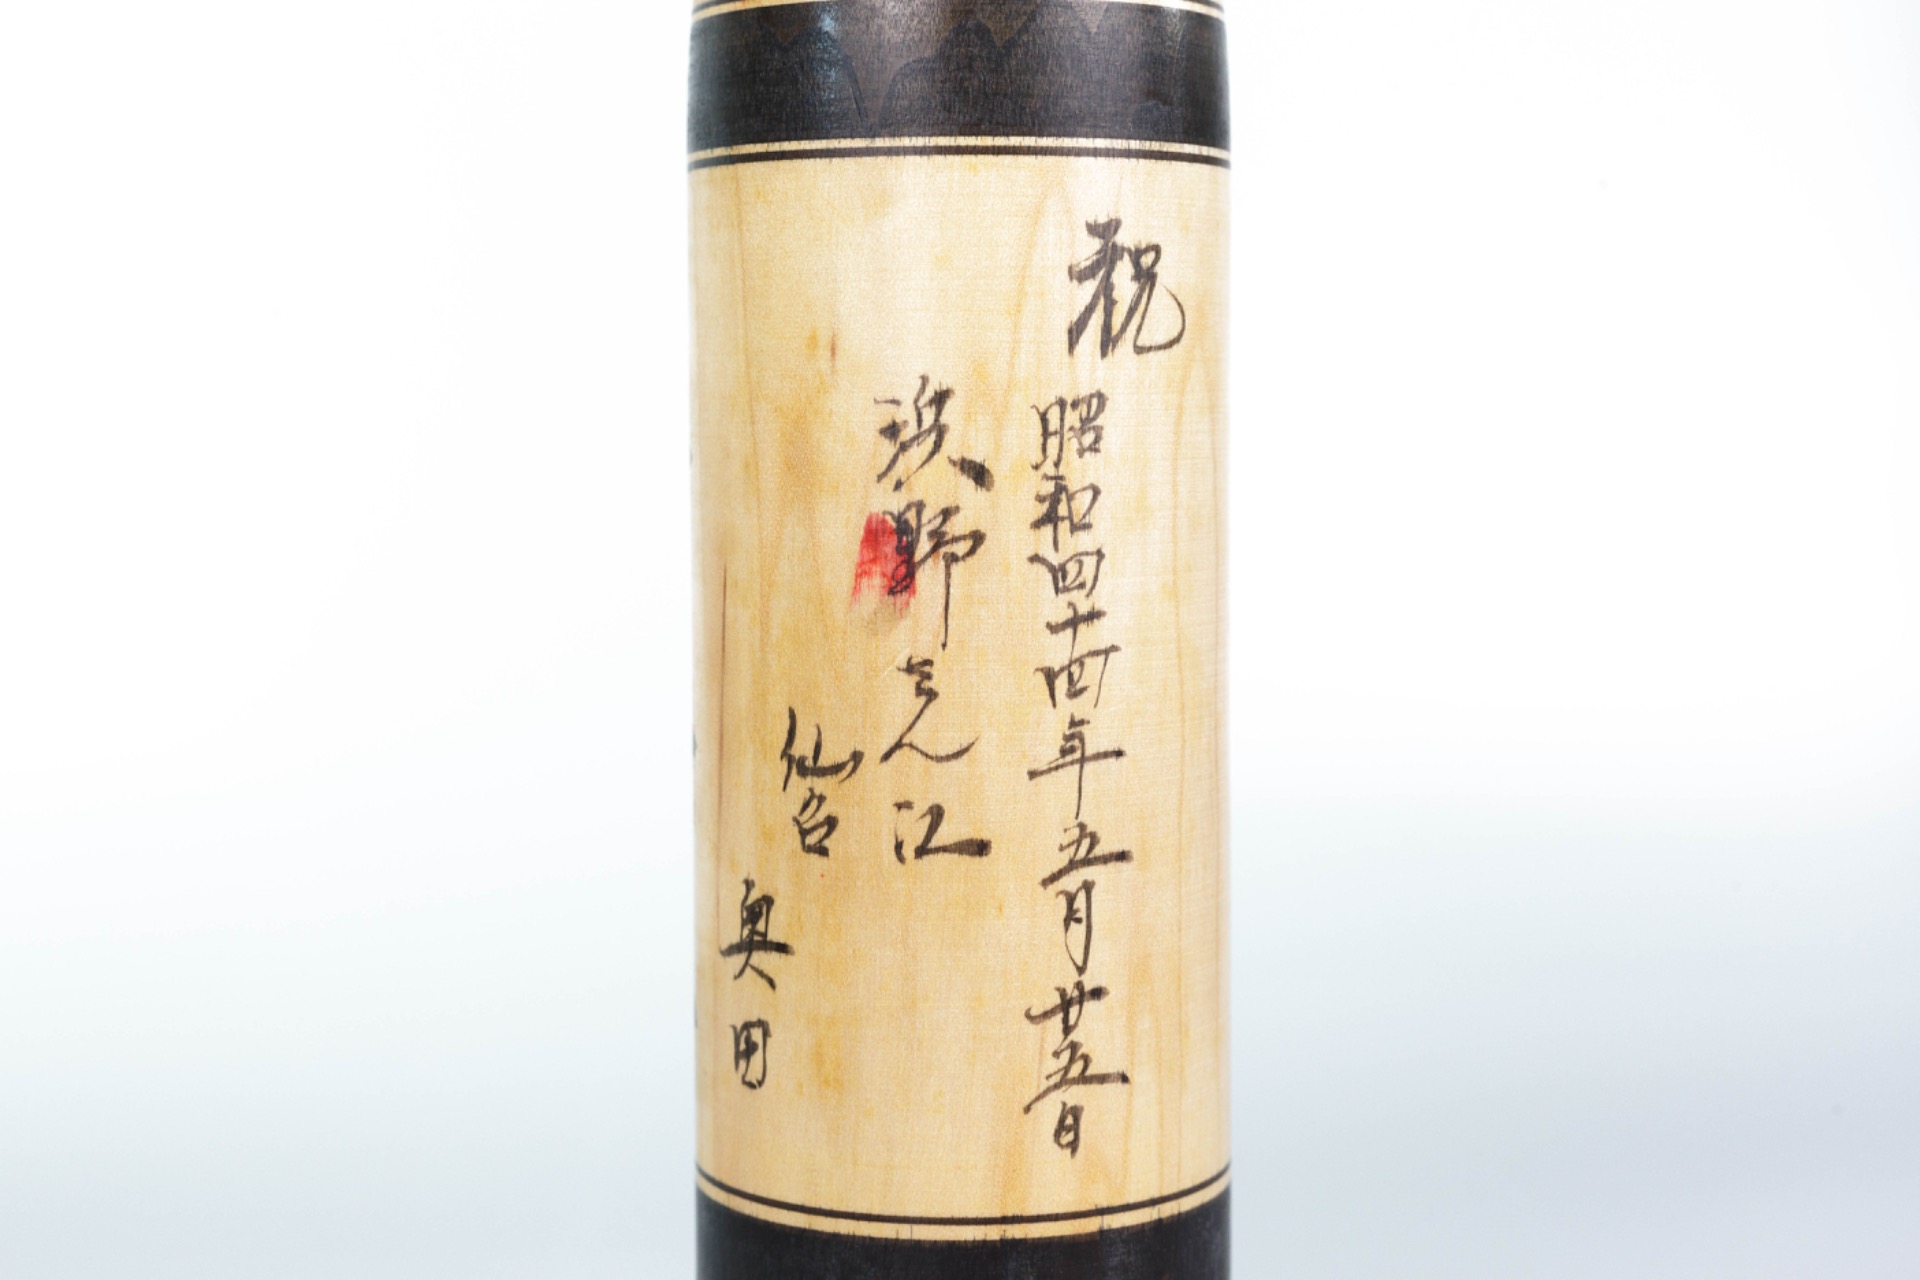 祝
昭和四十四年五月廿五日
浜野さん江
仙台
奥田